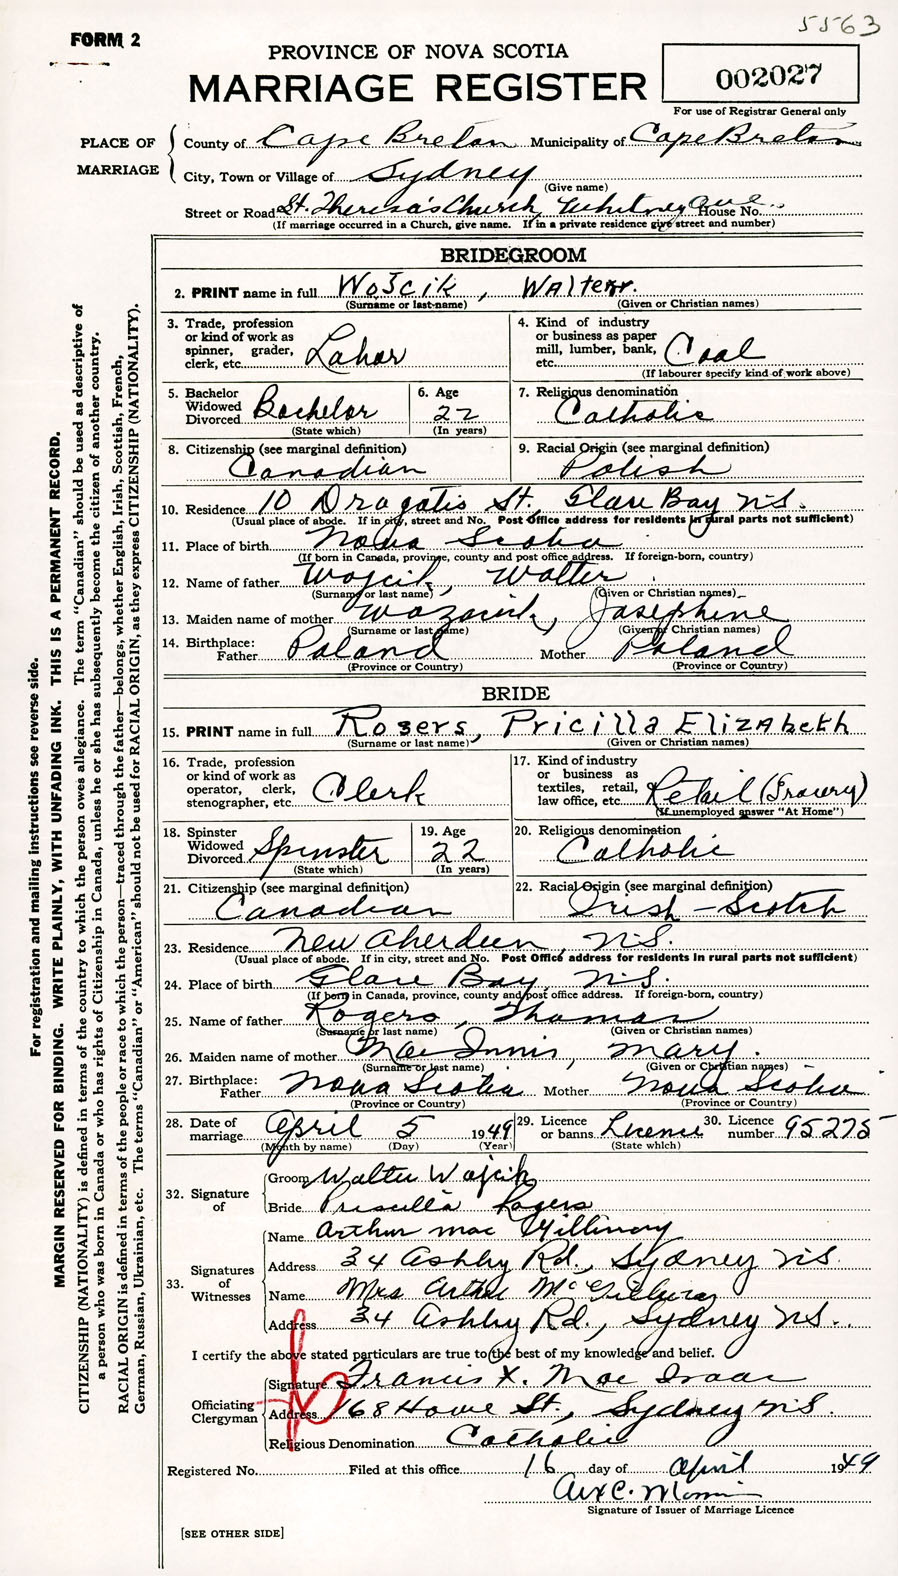 5563
FORM 2
PROVINCE OF NOVA SCOTIA
MARRIAGE REGISTER
002027
For use of Registrar General only
PLACE OF MARRIAGE
County of Cape Breton Municipality of Cape Breton
City, Town or Village of Sydney
(Give name)
Street or Road St. Theresa's Church, Whitney Ave House No.
(If marriage occurred in a Church, give name. If in a private residence give street and number)
BRIDEGROOM
2. PRINT name in full Wojcik, Walter.
(Surname or last name) (Given or Christian names)
3. Trade, profession or kind of work as spinner, grader, clerk, etc. Labor
4. Kind of industry or business as paper mill, lumber, bank, etc. Coal
(If labourer specify kind of work above)
5. Bachelor Widowed Divorced Bachelor
(State which)
6. Age 22
(In years)
7. Religious denomination Catholic
8. Citizenship (see marginal definition) Canadian
9. Racial Origin (see marginal definition) Polish
10. Residence 10 Dragatis St, Glace Bay N.S.
(Usual place of abode. If in city, street and No. Post Office address for residents in rural parts not sufficient)
11. Place of birth Nova Scotia
(If born in Canada, province, county and post office address. If foreign-born, country)
12. Name of father Wojcik, Walter
(Surname or last name) (Given or Christian names)
13. Maiden name of mother Josephine
(Surname or last name) (Given or Christian names)
14. Birthplace: Father Poland Mother Poland
(Province or Country) (Province or Country)
BRIDE
15. PRINT name in full Rogers, Pricilla Elizabeth
(Surname or last name) (Given or Christian names)
16. Trade, profession or kind of work as operator, clerk, stenographer, etc. Clerk
17. Kind of industry or business as textiles, retail, law office, etc. Retail (Grocery)
(If unemployed answer "At Home")
18. Spinster Widowed Divorced Spinster
(State which)
19. Age 22
(In years)
20. Religious denomination Catholic
21. Citizenship (see marginal definition) Canadian
22. Racial Origin (see marginal definition) Irish-Scotch
23. Residence New Aberdeen, N.S.
(Usual place of abode. If in city, street and No. Post Office address for residents in rural parts not sufficient)
24. Place of birth Glace Bay, N.S.
(If born in Canada, province, county and post office address. If foreign-born, country)
25. Name of father Rogers, Thomas
(Surname or last name) (Given or Christian names)
26. Maiden name of mother MacInnis, Mary.
(Surname or last name) (Given or Christian names)
27. Birthplace: Father Nova Scotia Mother Nova Scotia
(Province or Country) (Province or Country)
28. Date of marriage April 5 1949
(Month by name) (Day) (Year)
29. Licence or banns Licence
(State which)
30. Licence number 95275
32. Signature of
Groom Walter Wojcik
Bride Priscilla Rogers
33. Signatures of Witnesses
Name Arthur Mac Gillivray
Address 34 Ashby Rd., Sydney N.S.
Name Mrs Arthur McGillivray
Address 34 Ashby Rd., Sydney N.S.
I certify the above stated particulars are true to the best of my knowledge and belief.
Officiating Clergyman
Signature Francis X. Mac Isaac
Address 168 Howe St., Sydney N.S.
Religious Denomination Catholic
Registered No. Filed at this office 16 day of April 1949
Signature of Issuer of Marriage Licence
[SEE OTHER SIDE]
For registration and mailing instructions see reverse side.
MARGIN RESERVED FOR BINDING. WRITE PLAINLY, WITH UNFADING INK. THIS IS A PERMANENT RECORD.
CITIZENSHIP (NATIONALITY) is defined in terms of the country to which the person owes allegiance. The term "Canadian" should be used as descriptive of
a person who was born in Canada or who has rights of Citizenship in Canada, unless he or she has subsequently become the citizen of another country.
RACIAL ORIGIN is defined in terms of the people or race to which the person—traced through the father—belongs, whether English, Irish, Scottish, French,
German, Russian, Ukrainian, etc. The terms "Canadian" or "American" should not be used for RACIAL ORIGIN, as they express CITIZENSHIP (NATIONALITY).